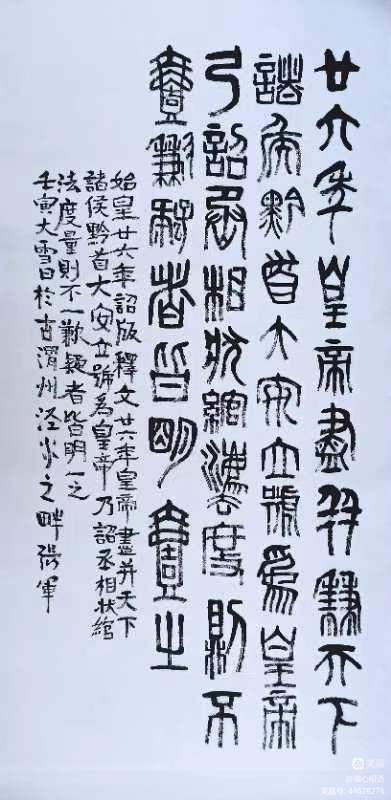 廿六年皇帝盡并兼天下
諸侯黔首大安立號為皇帝
乃詔丞相狀綰灋度則不
壹歉疑者皆明壹之
始皇廿六年詔版釋文廿六年皇帝盡并天下
諸侯黔首大安立號為皇帝乃詔丞相狀綰
法度量則不一歉疑者皆明一之
壬寅大雪日於古渭州泾水之畔張軍
美篇